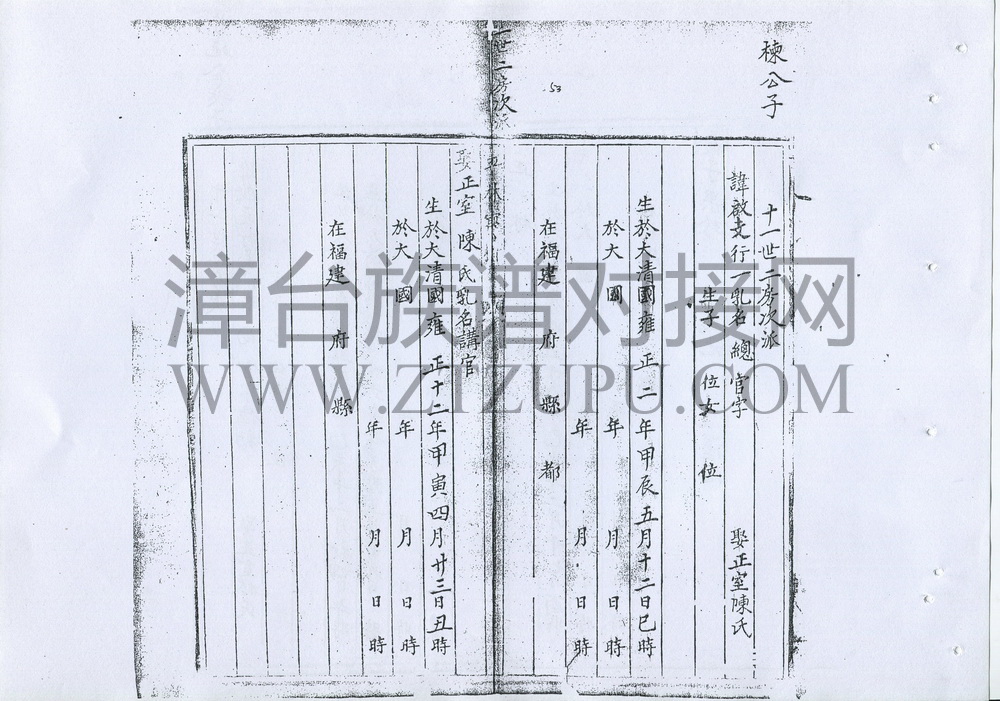 棟公子
十一世二房次派
諱啟支行一乳名總官字 娶正室陳氏
生子 位女 位
生於大清國雍正二年甲辰五月十二日巳時
於大 國 年 月 日 時
年 月 日 時
在福建 府 縣 都
二房次派
53
娶正室陳氏乳名講官
生於大清國雍正十二年甲寅四月廿三日丑時
於大 國 年 月 日 時
年 月 日 時
在福建 府 縣
漳台族谱对接网
WWW.ZTZUPU.COM